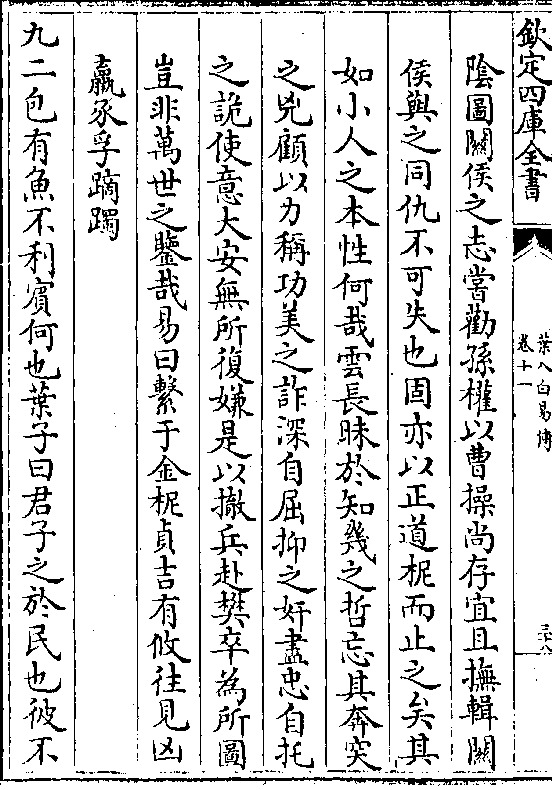 欽定四庫全書
葉八白易傳
卷十一
三十八
陰圖關侯之志嘗勸孫權以曹操尚存宜且撫輯關
侯與之同仇不可失也固亦以正道柅而止之矣其
如小人之本性何哉雲長昧於知幾之哲忘其奔突
之兇顧以力稱功美之詐深自屈抑之奸盡忠自托
之詭使意大安無所復嫌是以撤兵赴樊卒為所圖
豈非萬世之鑒哉易曰繫于金柅貞吉有攸往見凶
羸豕孚蹢躅
九二包有魚不利賓何也葉子曰君子之於民也彼不